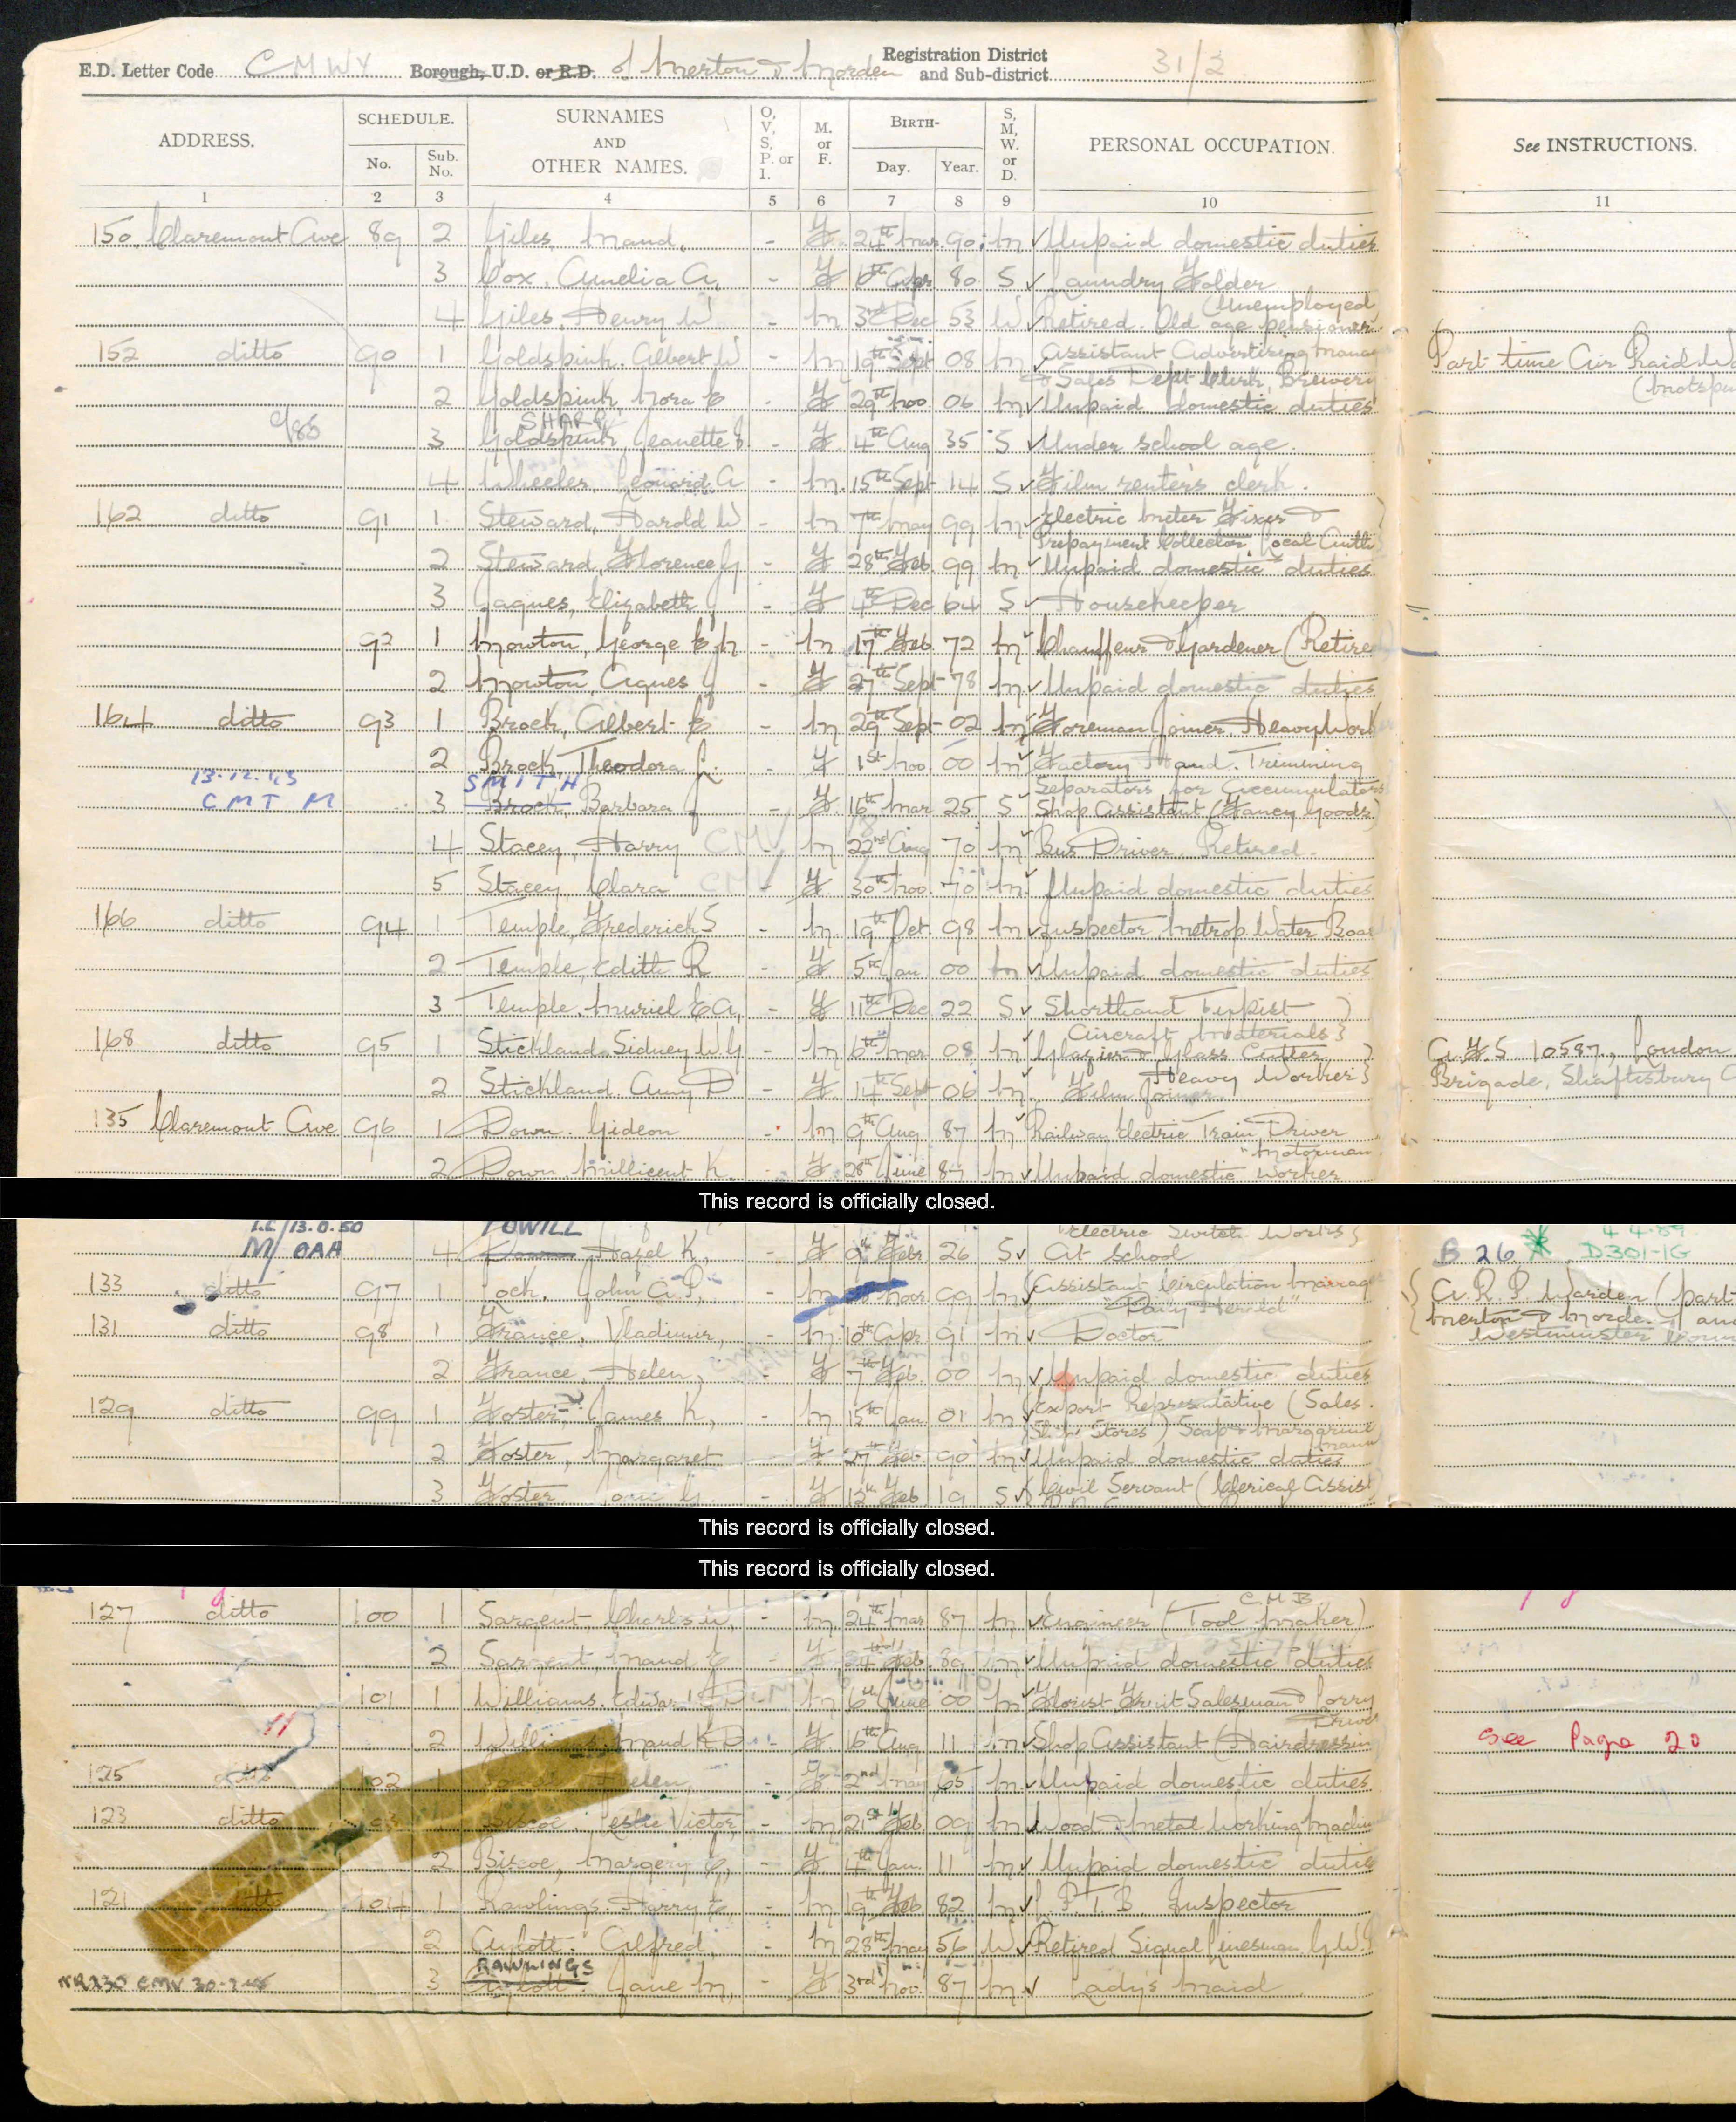 E.D. Letter Code CMWY Borough, U.D. or R.D. of Merton & Morden Registration District and Sub-district 31/2
ADDRESS. SCHEDULE. No. Sub. No. SURNAMES AND OTHER NAMES. O, V, S, P. or I. M. or F. BIRTH- Day. Year. S, M, W. or D. PERSONAL OCCUPATION. See INSTRUCTIONS.
1 2 3 4 5 6 7 8 9 10 11
150 Claremont Ave 89 2 Giles, Maud, - F 24th Mar 90 M Unpaid domestic duties
3 Cox, Amelia A, - F 6th Apr 80 S Laundry Folder
(Unemployed)
4 Giles, Henry W - M 3rd Dec 53 W Retired. Old age pensioner.
152 ditto 90 1 Goldspink. Albert W - M 19th Sept 08 M Assistant Advertising Manag Part time Air Raid
& Sales Dept Clerk, Brewery
2 Goldspink Nora E - F 29th Nov 06 M Unpaid domestic duties
SHARP
C/85 3 Goldspink, Jeanette - F 4th Aug 35 S Under school age.
4 Wheeler, Leonard A - M 15th Sept 14 S Film renters clerk.
162 ditto 91 1 Steward, Harold W - M 7th May 99 M Electric Meter Fixer &
Prepayment Collector, Local Auth
2 Steward, Florence G - F 28th Feb 99 M Unpaid domestic duties
3 Jaques, Elizabeth - F 4th Dec 64 S Housekeeper
92 1 Mowton, George E M - M 17th Feb 72 M Chauffeur & Gardener (Retired
2 Mowton, Agnes J - F 27th Sept 78 M Unpaid domestic duties
164 ditto 93 1 Brock, Albert E - M 29th Sept 02 M Foreman Joiner. Heavy Worker
2 Brock, Theodora - F 1st Nov 00 M Factory Hand. Trimming
Separators for Accumulators
13.12.43 SMITH
CMT M 3 Brock, Barbara J - F 16th Mar 25 S Shop Assistant (Fancy Goods)
4 Stacey, Harry CMV - M 22nd Aug 70 M Bus Driver. Retired.
5 Stacey, Clara CMV - F 30th Nov. 70 M Unpaid domestic duties
166 ditto 94 1 Temple, Frederick S - M 19th Oct 98 M Inspector, Metrop. Water Board
2 Temple, Edith R - F 5th Jan 00 M Unpaid domestic duties
3 Temple. Muriel E A, - F 11th Dec 22 S Shorthand Typist
Aircraft Materials
168 ditto 95 1 Stickland, Sidney W G - M 6th Mar 08 M Glazier & Glass Cutter, A.F.S 10587, London
Heavy Worker Brigade, Shaftesbury
2 Stickland. Amy D - F 14th Sept 06 M Film Joiner.
135 Claremont Ave 96 1 Down. Gideon - M 9th Aug 87 M Railway Electric Train Driver
"Motorman
2 Down, Millicent K. - F 28th June 87 M Unpaid domestic worker
This record is officially closed.
13.8.50 TOWILL Electric Switch Works 4.4.89
M/ OAA 4 Hazel K. - F 9th Febr 26 S At School B 26 D301-1G
133 ditto 97 1 Lock. John A.P. - M Nov 99 M Assistant Circulation Manag A.R.P. Warden (part
"Daily Herald" Merton & Morden and
131 ditto 98 1 France, Vladimir, M 10th Apr 91 M Doctor Westminster
2 France, Helen, - F 7th Feb. 00 M Unpaid domestic duties
129 ditto 99 1 Foster, James K, - M 15th Jan 01 M Export Representative (Sales.
Ships Stores) Soap & Margarine
2 Foster, Margaret - F 27th Feb 90 M Unpaid domestic duties
3 Foster, G - F 13th Feb 19 S Civil Servant (Clerical Assist
This record is officially closed.
This record is officially closed.
C.M.B
127 ditto 100 1 Sargent, Charles - M 24th Mar 87 M Engineer (Tool maker)
2 Sargent, Maud E - F 24th Feb. 89 M Unpaid domestic duties
101 1 Williams. Edward - M 6th June 00 M Florist Fruit Salesman & Lorry
Driver
11 2 Maud K D - F 16th Aug 11 M Shop Assistant (Hairdressing See Page 20
125 ditto 102 1 Helen, - F 2nd May 65 M Unpaid domestic duties
123 ditto Leslie Victor - M 21st Feb. 09 M Wood & Metal Working Machin
2 Biscoe, Margery E, - F 4th Jan. 11 M Unpaid domestic duties
121 ditto 104 1 Rawlings. Harry E, - M 19th Feb 82 M L.P.T.B. Inspector
2 Aylott. Alfred, - M 28th May 56 W Retired Signal Linesman G.W.
RAWLINGS
NR230 CMV 3 Aylott. Jane M, - F 3rd Nov. 87 M Lady's Maid